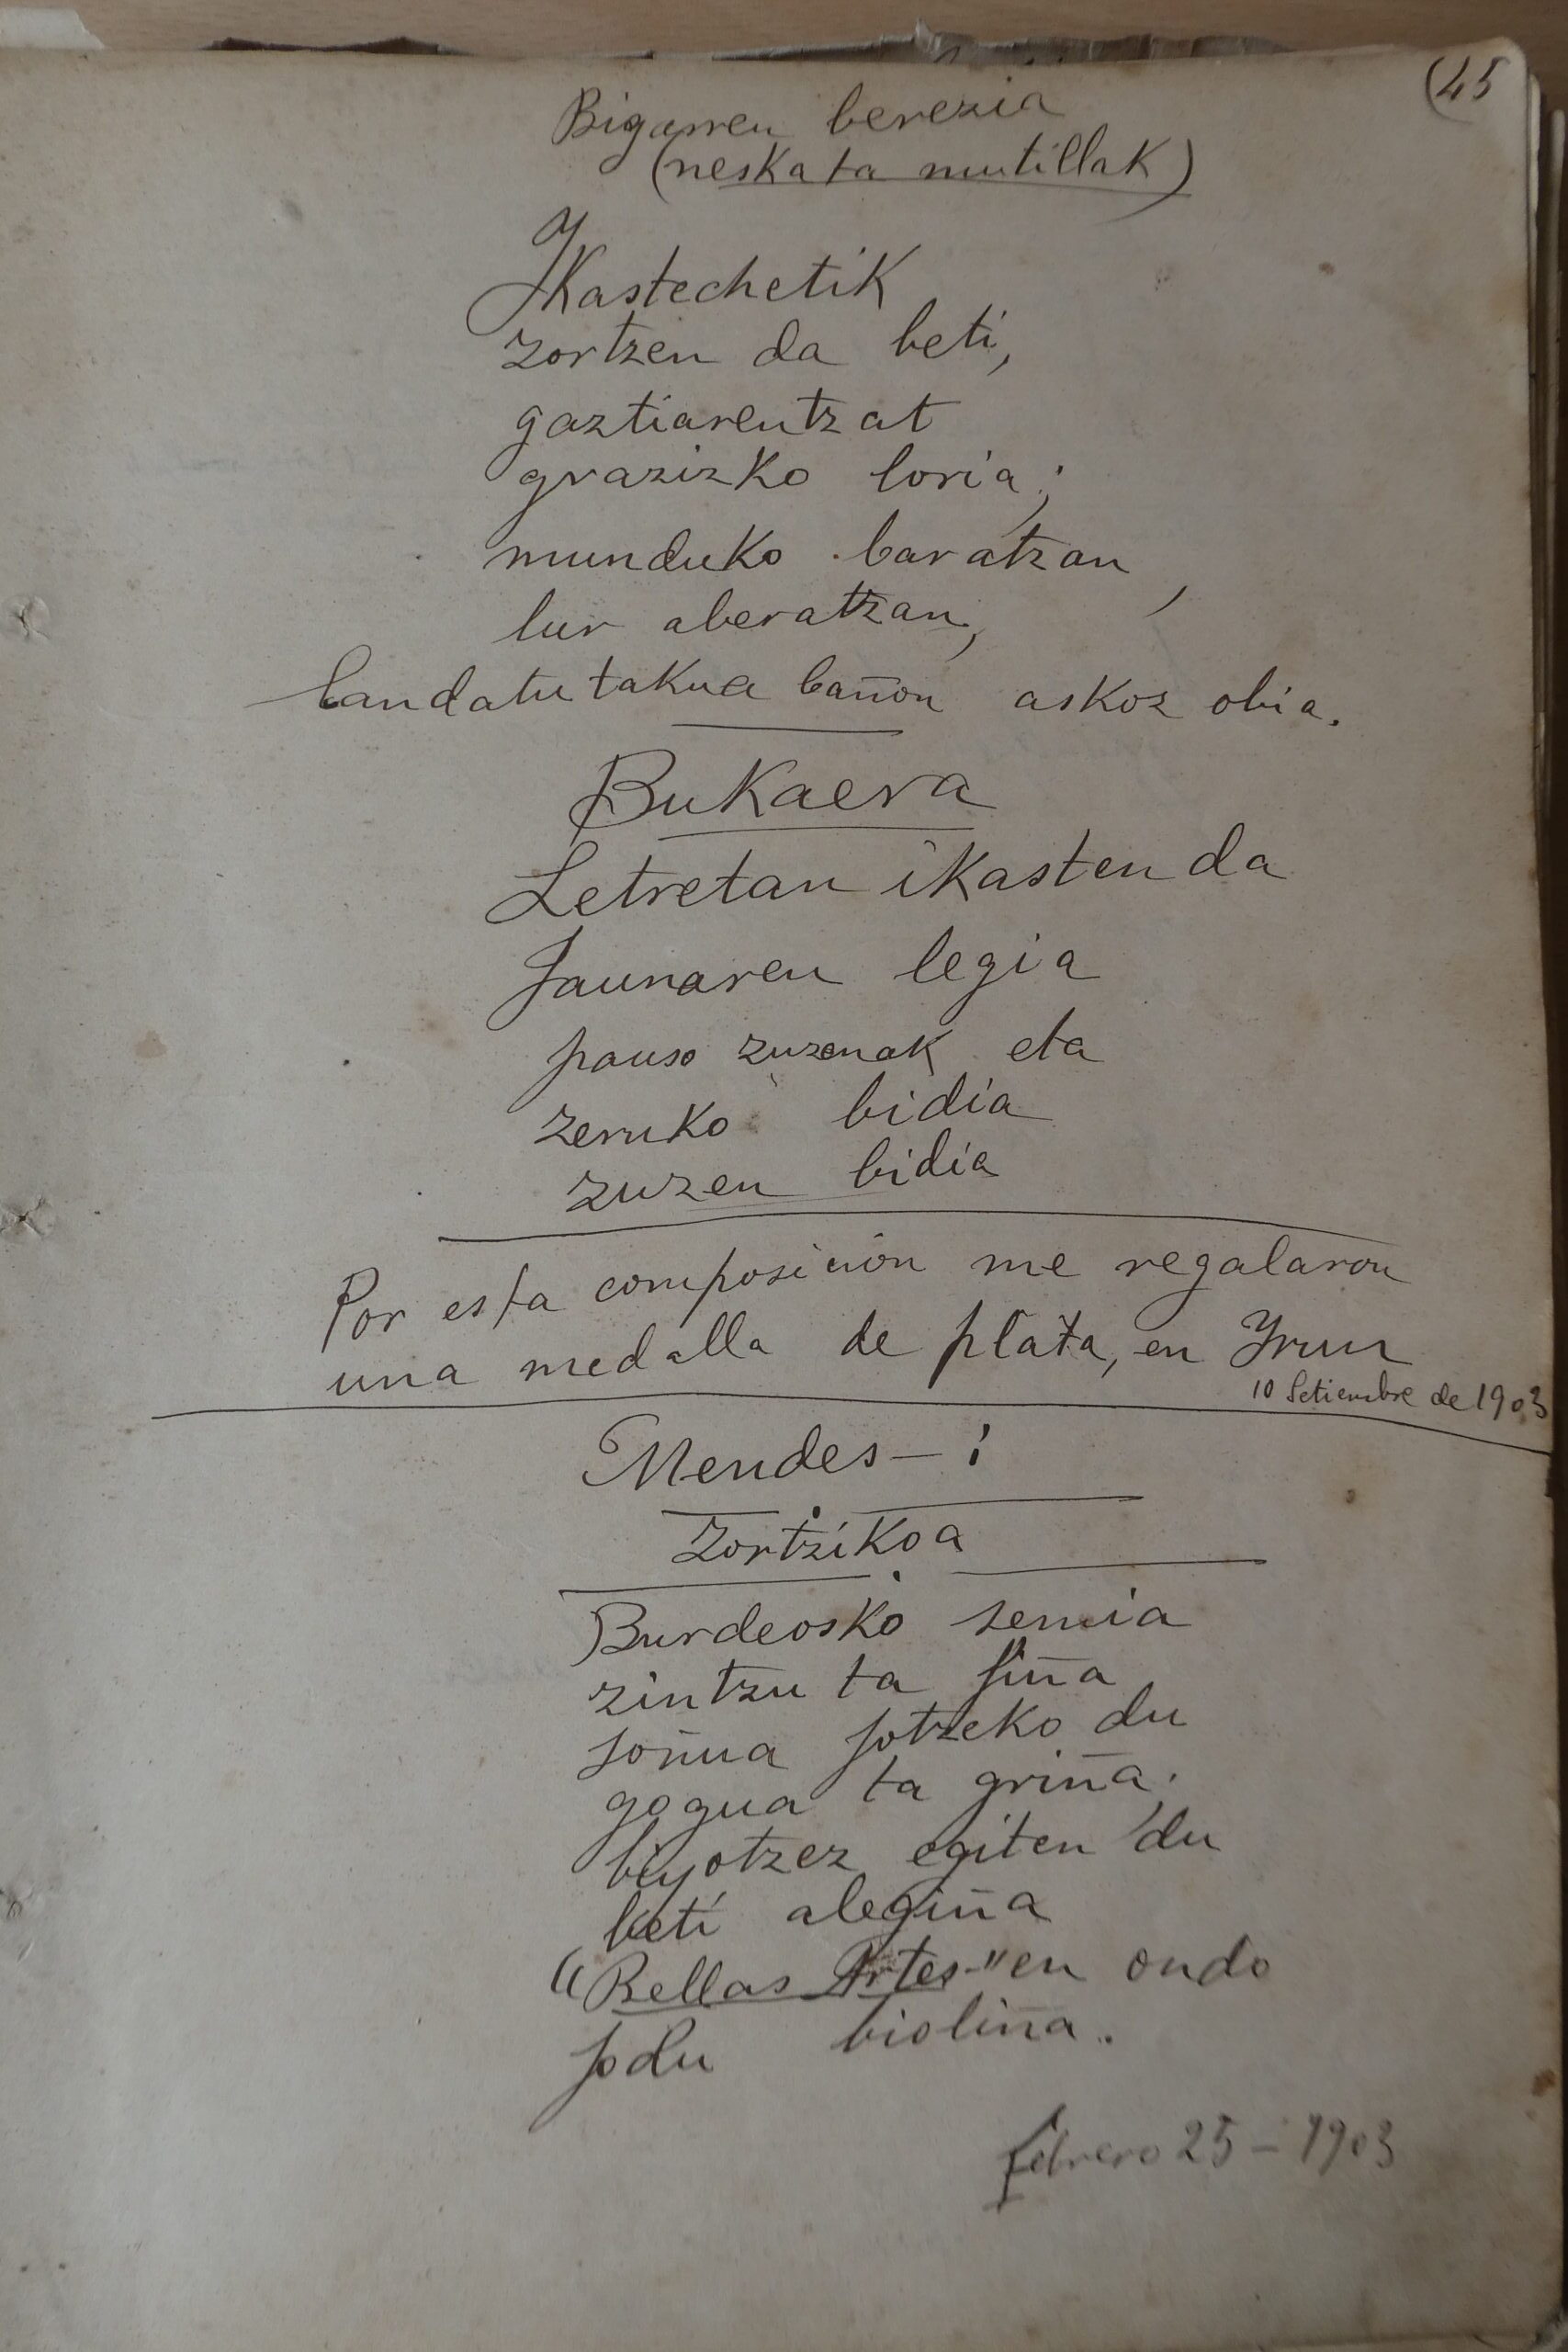 (45
Bigarren berezia
(neskata mutillak)
Ikastechetik
zortzen da beti,
gaztiarentzat
grazizko loria;
munduko baratzan,
lur aberatzan,
landatutakua bañon askoz obia.
Bukaera
Letretan ikasten da
Jaunaren legia
pauso zuzenak eta
zeruko bidia
zuzen bidia
Por esta composición me regalaron
una medalla de plata, en Yrun
10 Setiembre de 1903
Mendes-i
Zortzikoa
Burdeosko semia
zintzu ta fiña
soñua jotzeko du
gogua ta griña;
biyotzez egiten du
beti alegiña
"Bellas Artes"en ondo
jo du bioliña.
Febrero 25-1903